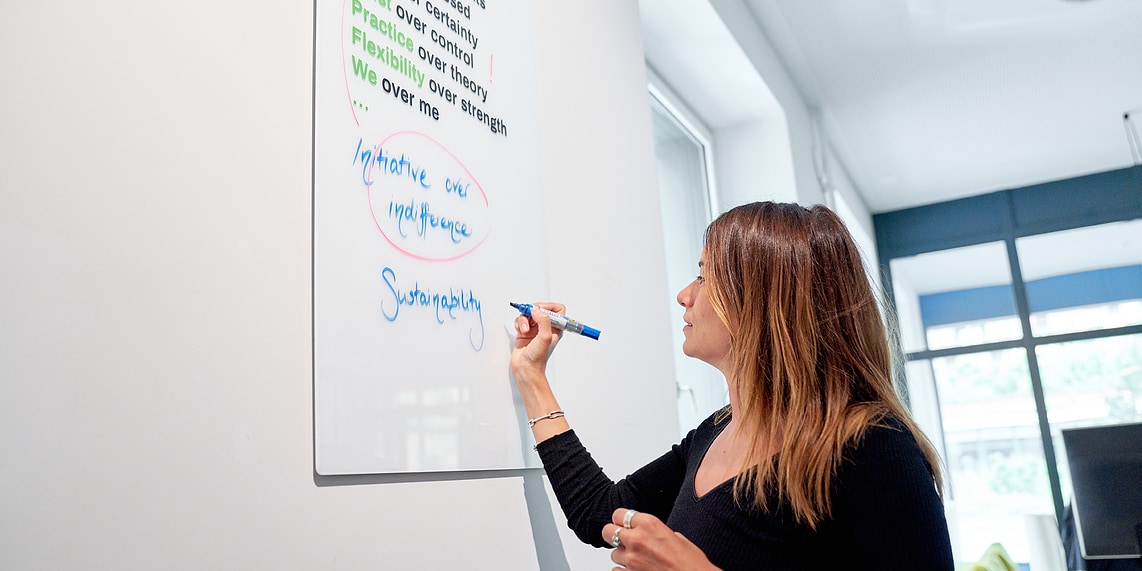 over certainty
over control
Practice over theory
Flexibility over strength
We over me
...
!
Initiative over
indifference
Sustainability